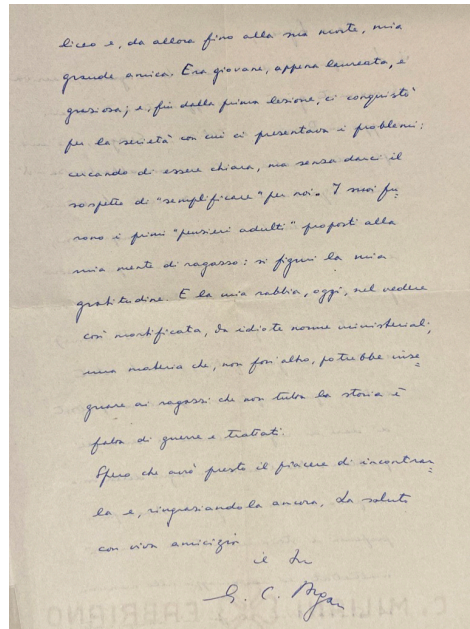 liceo e, da allora fino alla sua morte, mia
grande amica. Era giovane, appena laureata, e
graziosa; e, fin dalla prima lezione, ci conquistò
per la serietà con cui ci presentava i problemi:
cercando di essere chiara, ma senza darci il
sospetto di "semplificare" per noi. I suoi fu-
rono i primi "pensieri adulti" proposti alla
mia mente di ragazzo: si figuri la mia
gratitudine. E la mia rabbia, oggi, nel vedere
così mortificata, da idiote norme ministeriali,
una materia che, non foss'altro, potrebbe inse=
gnare ai ragazzi che non tutta la storia è
fatta di guerre e trattati.
Spero che avrò presto il piacere di incontrar=
la e, ringraziandola ancora, La saluto
con viva amicizia
il Suo
G. C. Argan
C. MILIANI FABRIANO